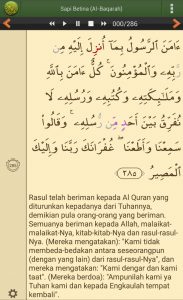 Sapi Betina (Al-Baqarah)
000/286
ءَامَنَ ٱلرَّسُولُ بِمَآ أُنزِلَ إِلَيْهِ مِن
رَّبِّهِۦ وَٱلْمُؤْمِنُونَ ۚ كُلٌّ ءَامَنَ بِٱللَّهِ
وَمَلَـٰٓئِكَتِهِۦ وَكُتُبِهِۦ وَرُسُلِهِۦ لَا
نُفَرِّقُ بَيْنَ أَحَدٍ مِّن رُّسُلِهِۦ ۚ وَقَالُوا۟
سَمِعْنَا وَأَطَعْنَا ۖ غُفْرَانَكَ رَبَّنَا وَإِلَيْكَ
ٱلْمَصِيرُ ٢٨٥
285
Rasul telah beriman kepada Al Quran yang
diturunkan kepadanya dari Tuhannya,
demikian pula orang-orang yang beriman.
Semuanya beriman kepada Allah, malaikat-
malaikat-Nya, kitab-kitab-Nya dan rasul-rasul-
Nya. (Mereka mengatakan): "Kami tidak
membeda-bedakan antara seseorangpun
(dengan yang lain) dari rasul-rasul-Nya", dan
mereka mengatakan: "Kami dengar dan kami
taat". (Mereka berdoa): "Ampunilah kami ya
Tuhan kami dan kepada Engkaulah tempat
kembali".